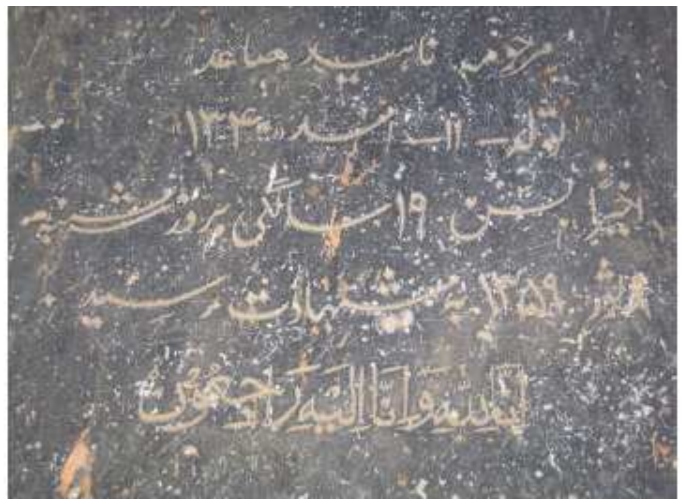 مرحومه ناسید صاعد
تولد ۱۱ اسفد ۱۳۴۰
اخیراً بسن ۱۹ سالگی بروز شنبه
۱۳۵۹ به شهادت رسید
انا لله وَانا الَیه رَاجعُونَ